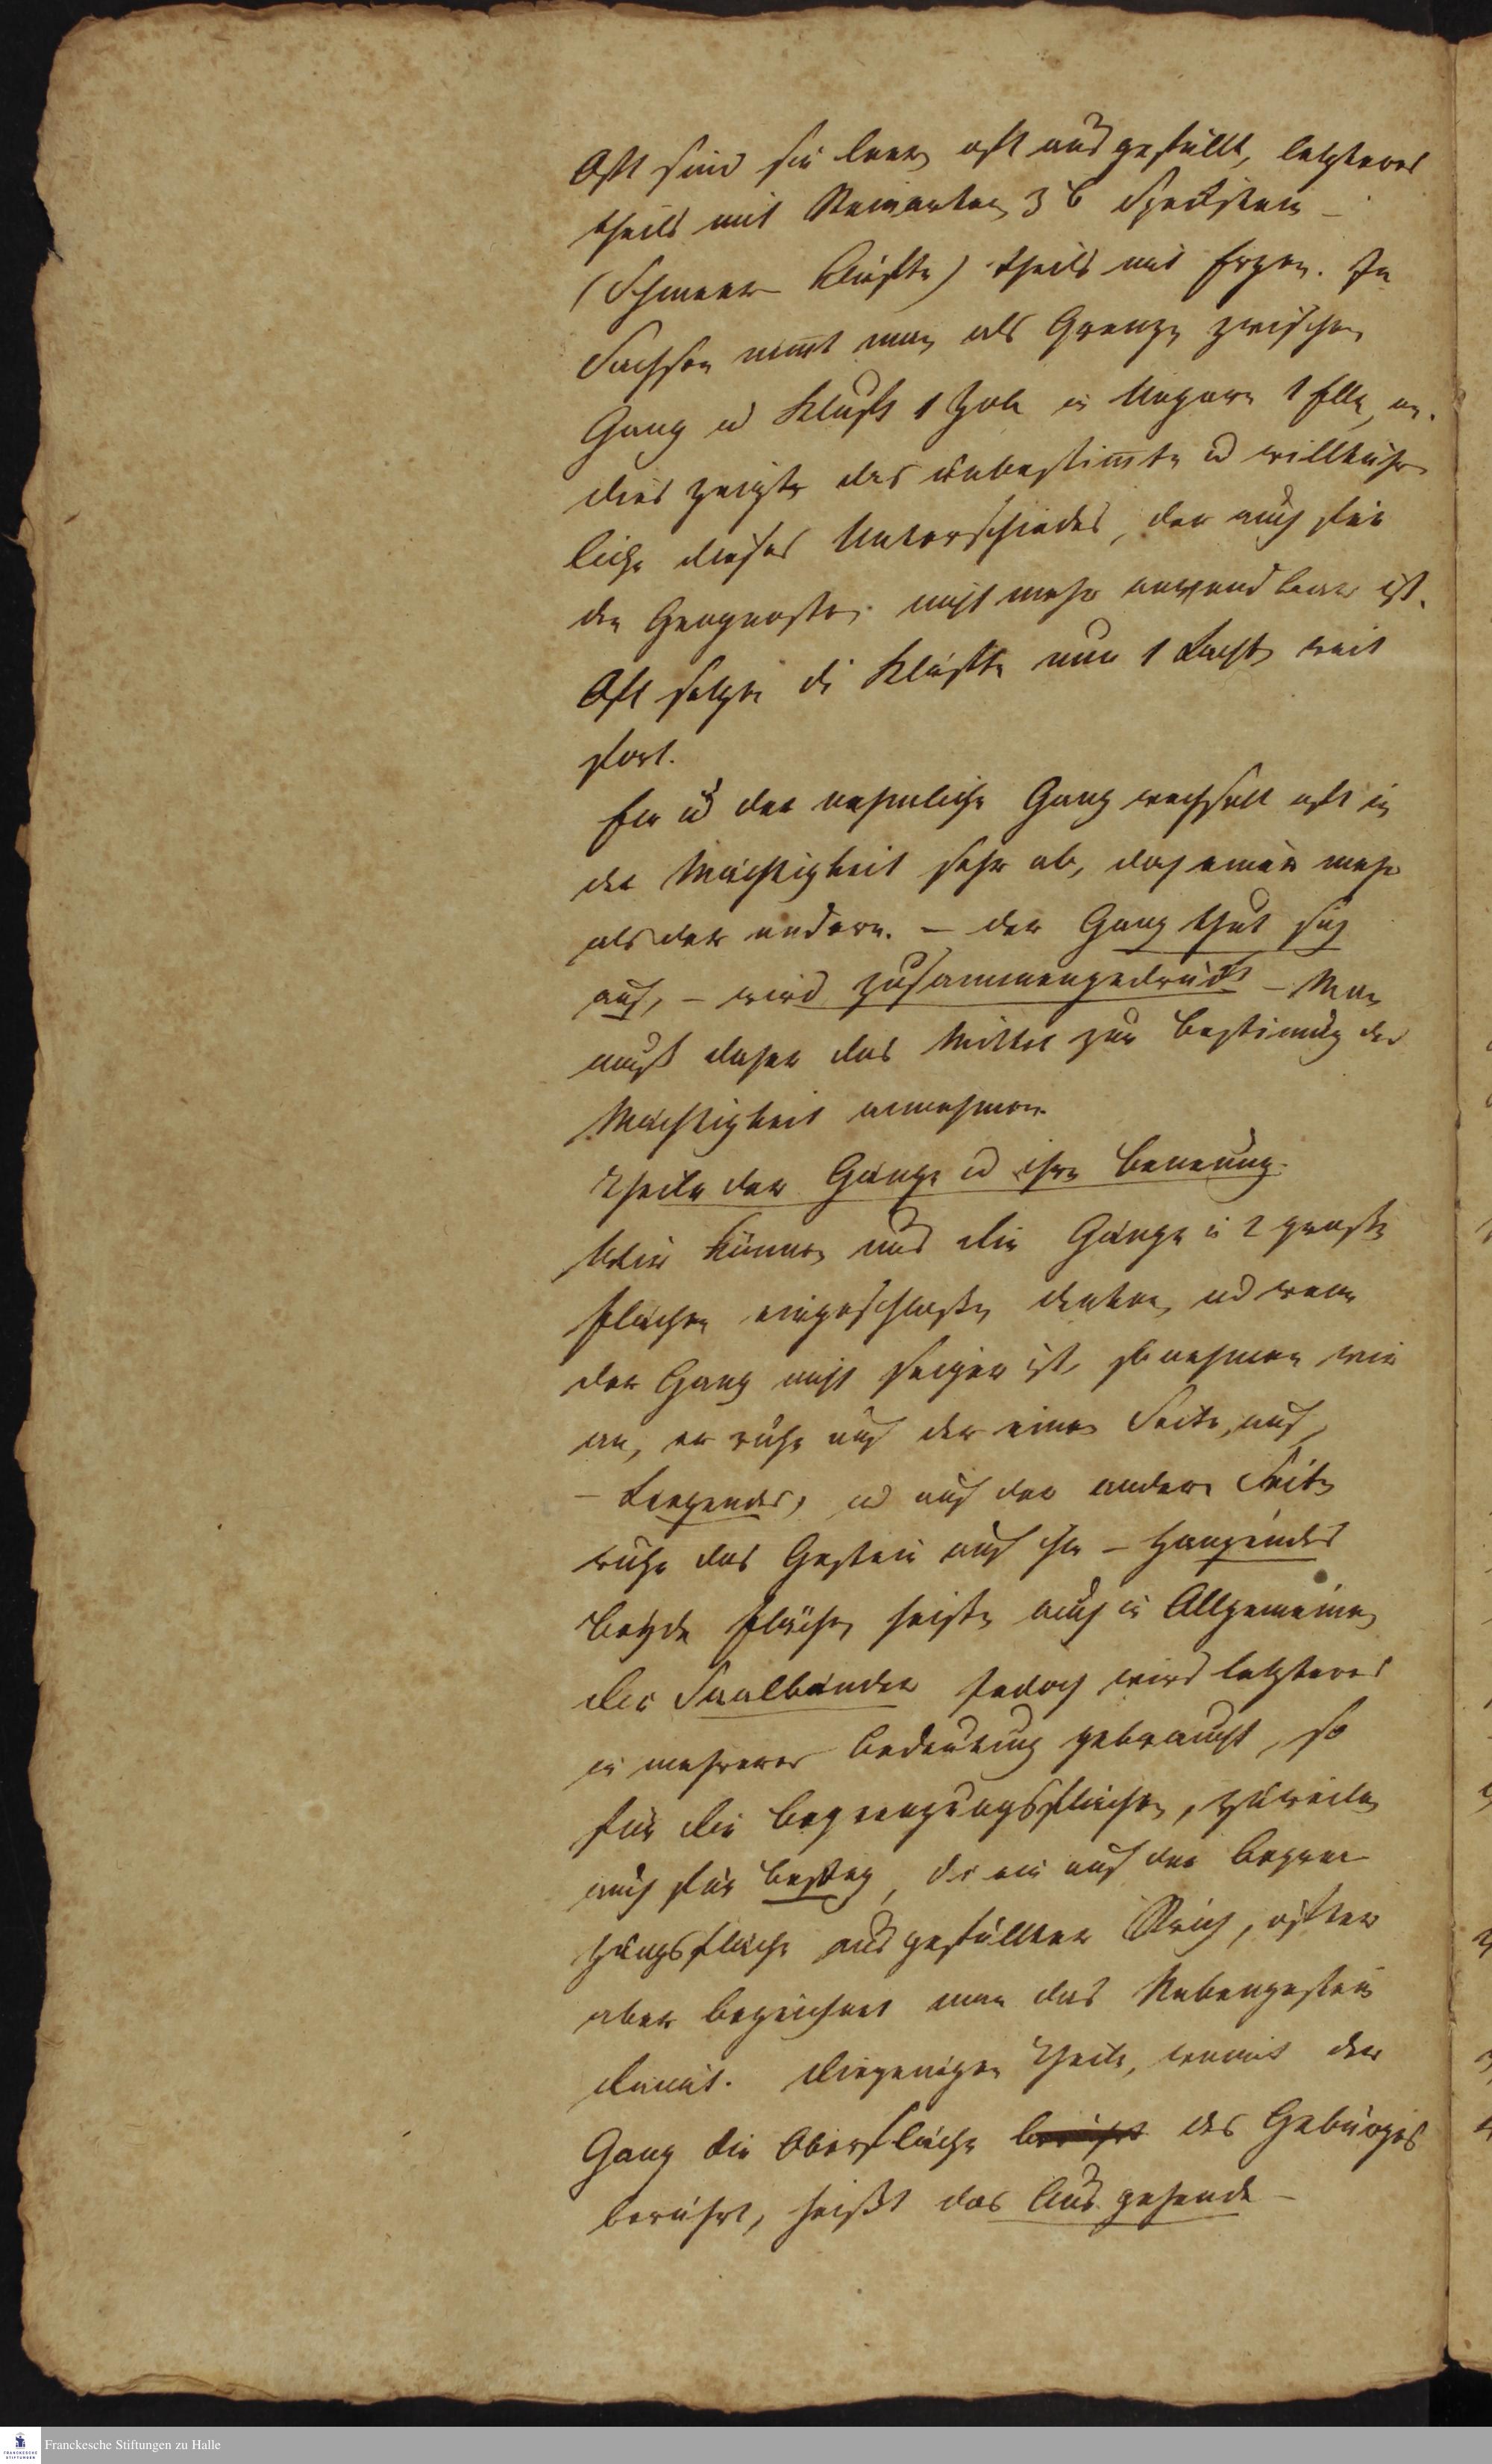 Oft sind sie leer, oft ausgefüllt, letzteres
theils mit Steinarten z b Speckstein –
(Schmeer Klüfte) theils mit Erzen. In
Sachsen nimt man als Grenze zwischen
Gang u Kluft 1 Zoll in Ungarn 1 Elle, an.
dies zeigte das unbestimte u willkühr
liche dieses Unterschiedes, der auch für
den Geognosten nicht mehr anwendbar ist.
Oft setzen di Klüfte nur 1 Lachter weit
fort.
Ein u der nehmliche Gang wechselt oft in
der Mächtigkeit sehr ab, doch einer mehr
als der andere. – der Gang thut sich
auf, – wird zusammengedrückt – Man
muß daher das Mittel zur Bestimung der
Mächtigkeit annehmen.
Theile der Gänge u ihre Benenung.
Wir können uns die Gänge in 2 große
Flächen eingeschloßen denken, u wenn
der Gang nicht seiger ist, so nehmen wir
an, er ruhe auf der einen Seite, auf,
– Liegendes, u auf der andern Seite
ruhe das Gestein auf ihm – Hangendes
Beyde Flächen heißen auch in Allgemeinen
die Saalbänder jedoch wird letzteres
in mehrerer Bedeutung gebraucht, so
für die Begrenzungsflächen, zuweilen
auch für Besteg, der ein auf der Begren
zungsfläche ausgefüllter Strich, öfter
aber bezeichnet man das Nebengestein
damit. Diejenigen Theile, womit der
Gang die Oberfläche berührt des Gebürges
berührt, heißt das Ausgehende –
Franckesche Stiftungen zu Halle
FRANCKESCHE
STIFTUNGEN